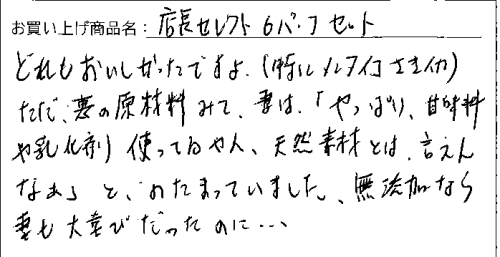 お買い上げ商品名: 店長セレクト 6パックセット
どれもおいしかったですよ.(特に
ただ、裏の原材料みて、妻は、「やっぱり、甘味料
や乳化剤 使ってるやん、天然素材とは、言えん
なぁ」と、のたまっていました。無添加なら
妻も大喜びだったのに…